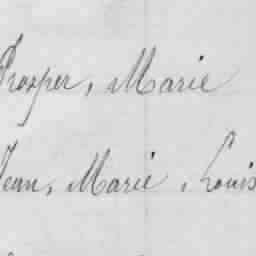 Prosper, Marie
Jean, Marie, Louis